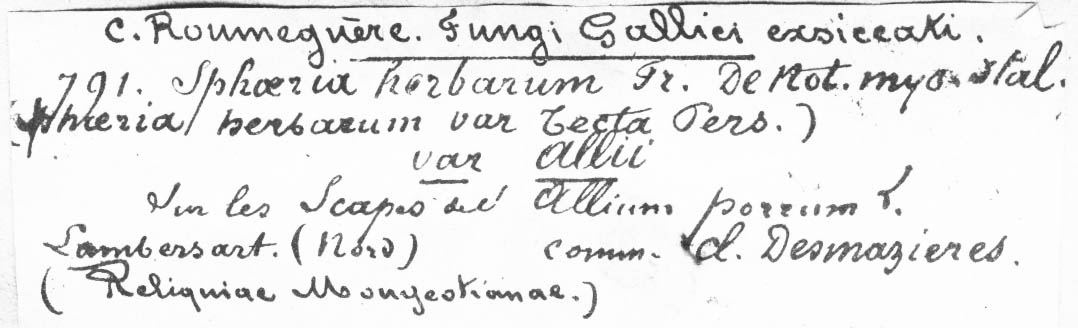 C. Roumeguère. Fungi Gallici exsiccati.
791. Sphæria herbarum Fr. De Not. myc. Ital.
Sphæria herbarum var tecta Pers.)
var allii
Sur les Scapes de l' Allium porrum L.
Lambersart. (Nord) comm. cl. Desmazieres.
(Reliquiae Mougeotianae.)